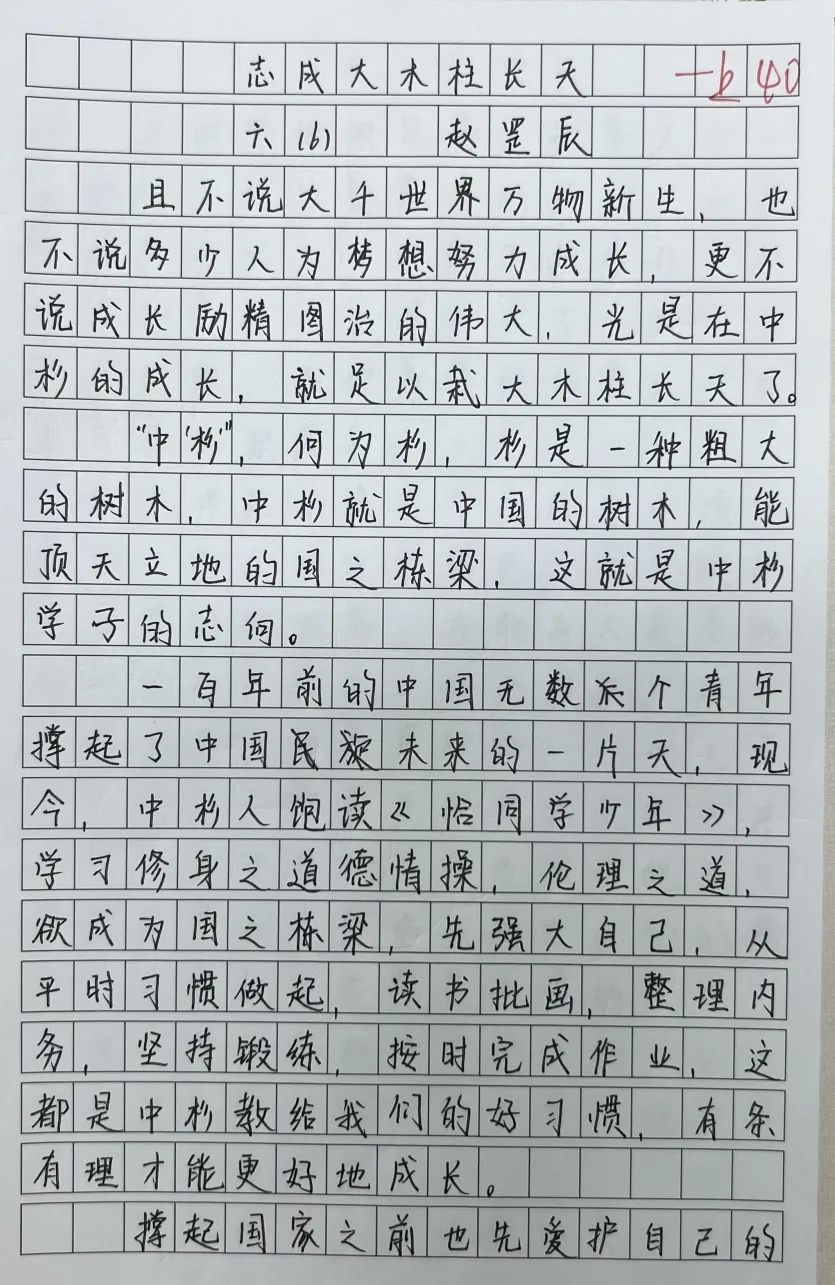 志成大木柱长天 上40
六(6) 赵罡辰
且不说大千世界万物新生，也
不说多少人为梦想努力成长，更不
说成长励精图治的伟大，光是在中
杉的成长，就足以栽大木柱长天了。
“中‘杉’”，何为杉，杉是一种粗大
的树木，中杉就是中国的树木，能
顶天立地的国之栋梁，这就是中杉
学子的志向。
一百年前的中国无数个青年
撑起了中国民族未来的一片天，现
今，中杉人饱读《恰同学少年》，
学习修身之道德情操，伦理之道，
欲成为国之栋梁，先强大自己，从
平时习惯做起，读书批画，整理内
务，坚持锻练，按时完成作业，这
都是中杉教给我们的好习惯，有条
有理才能更好地成长。
撑起国家之前也先爱护自己的